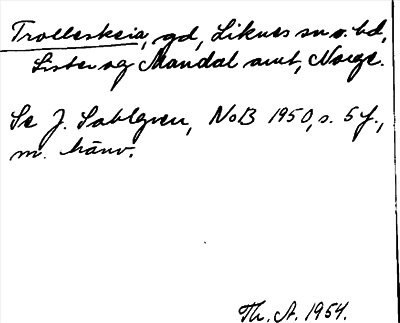 Trolleskeia, gd, Liknes sn o. hd,
Lister og Mandal amt, Norge.
Se J. Sahlgren, NoB 1950, s. 5 f.,
m. hänv.
Th. A. 1954.